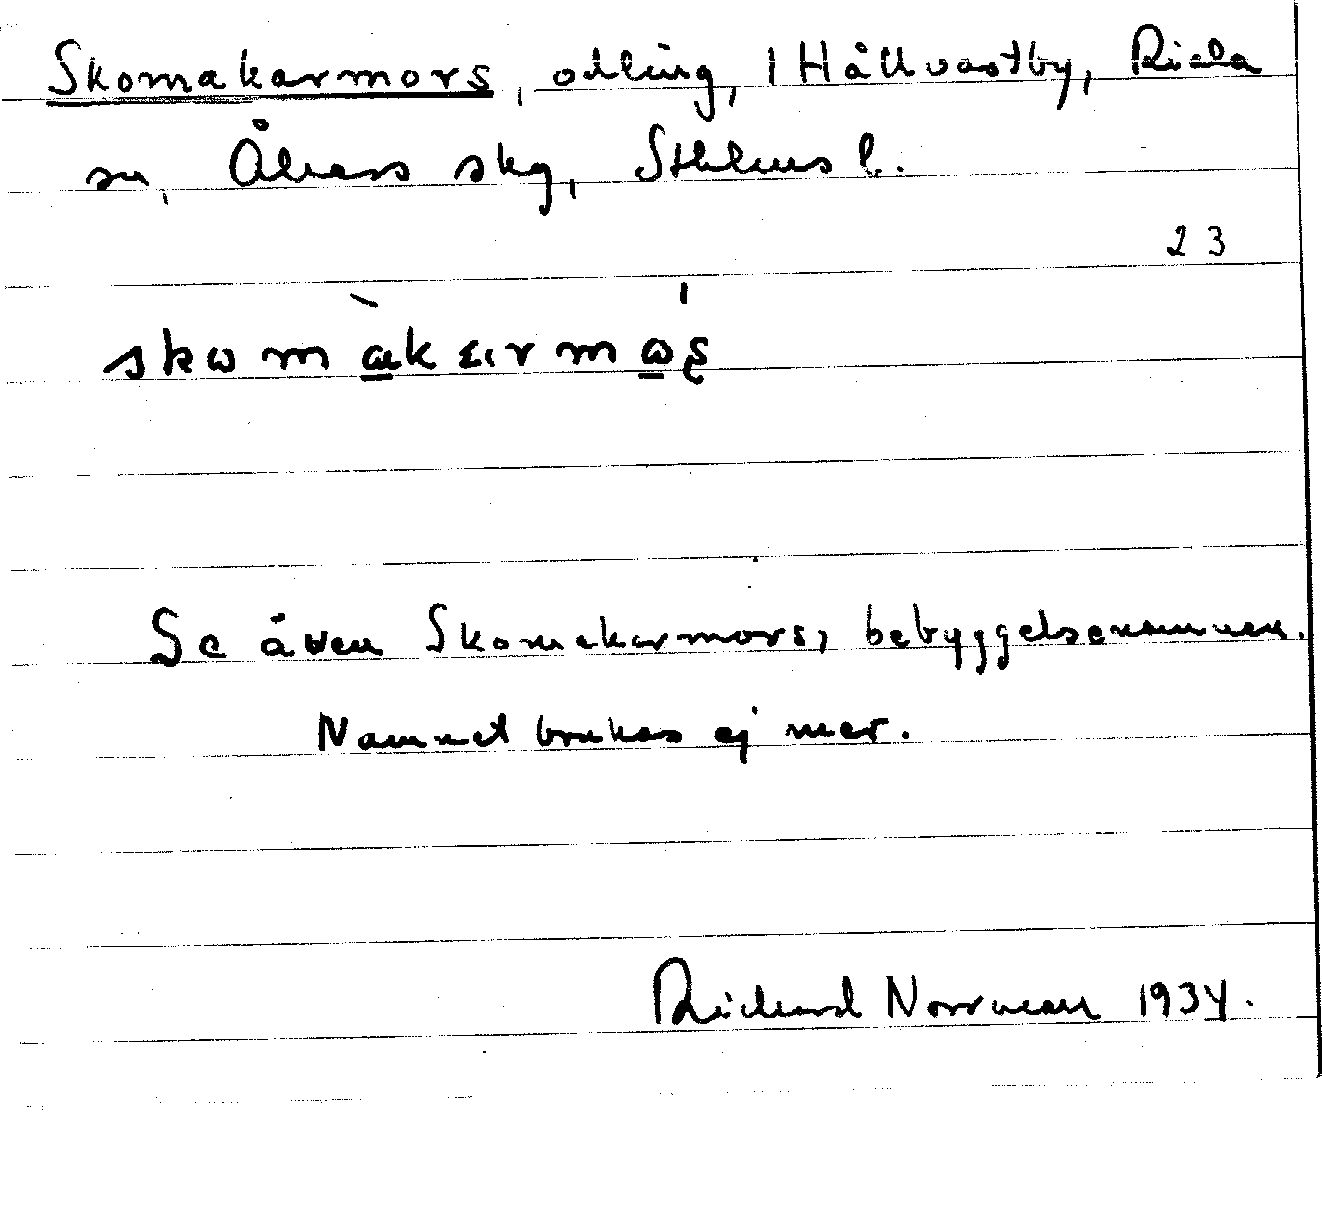 Skomakarmors, odling, 1 Hållvastby, Riala
sn, Åkers skg, Sthlms l.
23
Se även Skomakarmors, bebyggelsenamnen.
Namnet brukas ej mer.
Richard Norrman 1934.